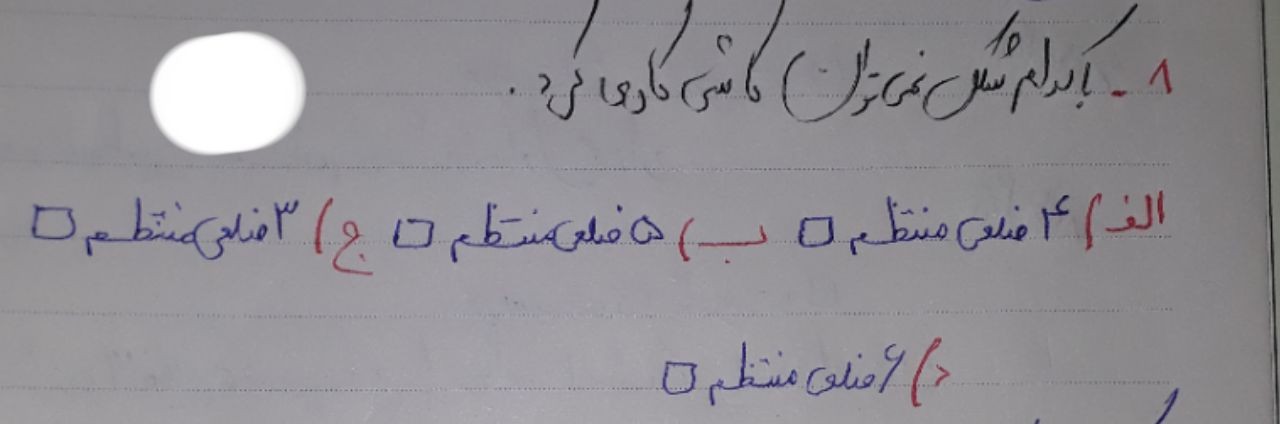 ۸ - با کدام شکل نمی‌توان کاشی کاری کرد.
الف) ۴ ضلعی منتظم □ ب) ۵ ضلعی منتظم □ ج) ۳ ضلعی منتظم □
د) ۶ ضلعی منتظم □